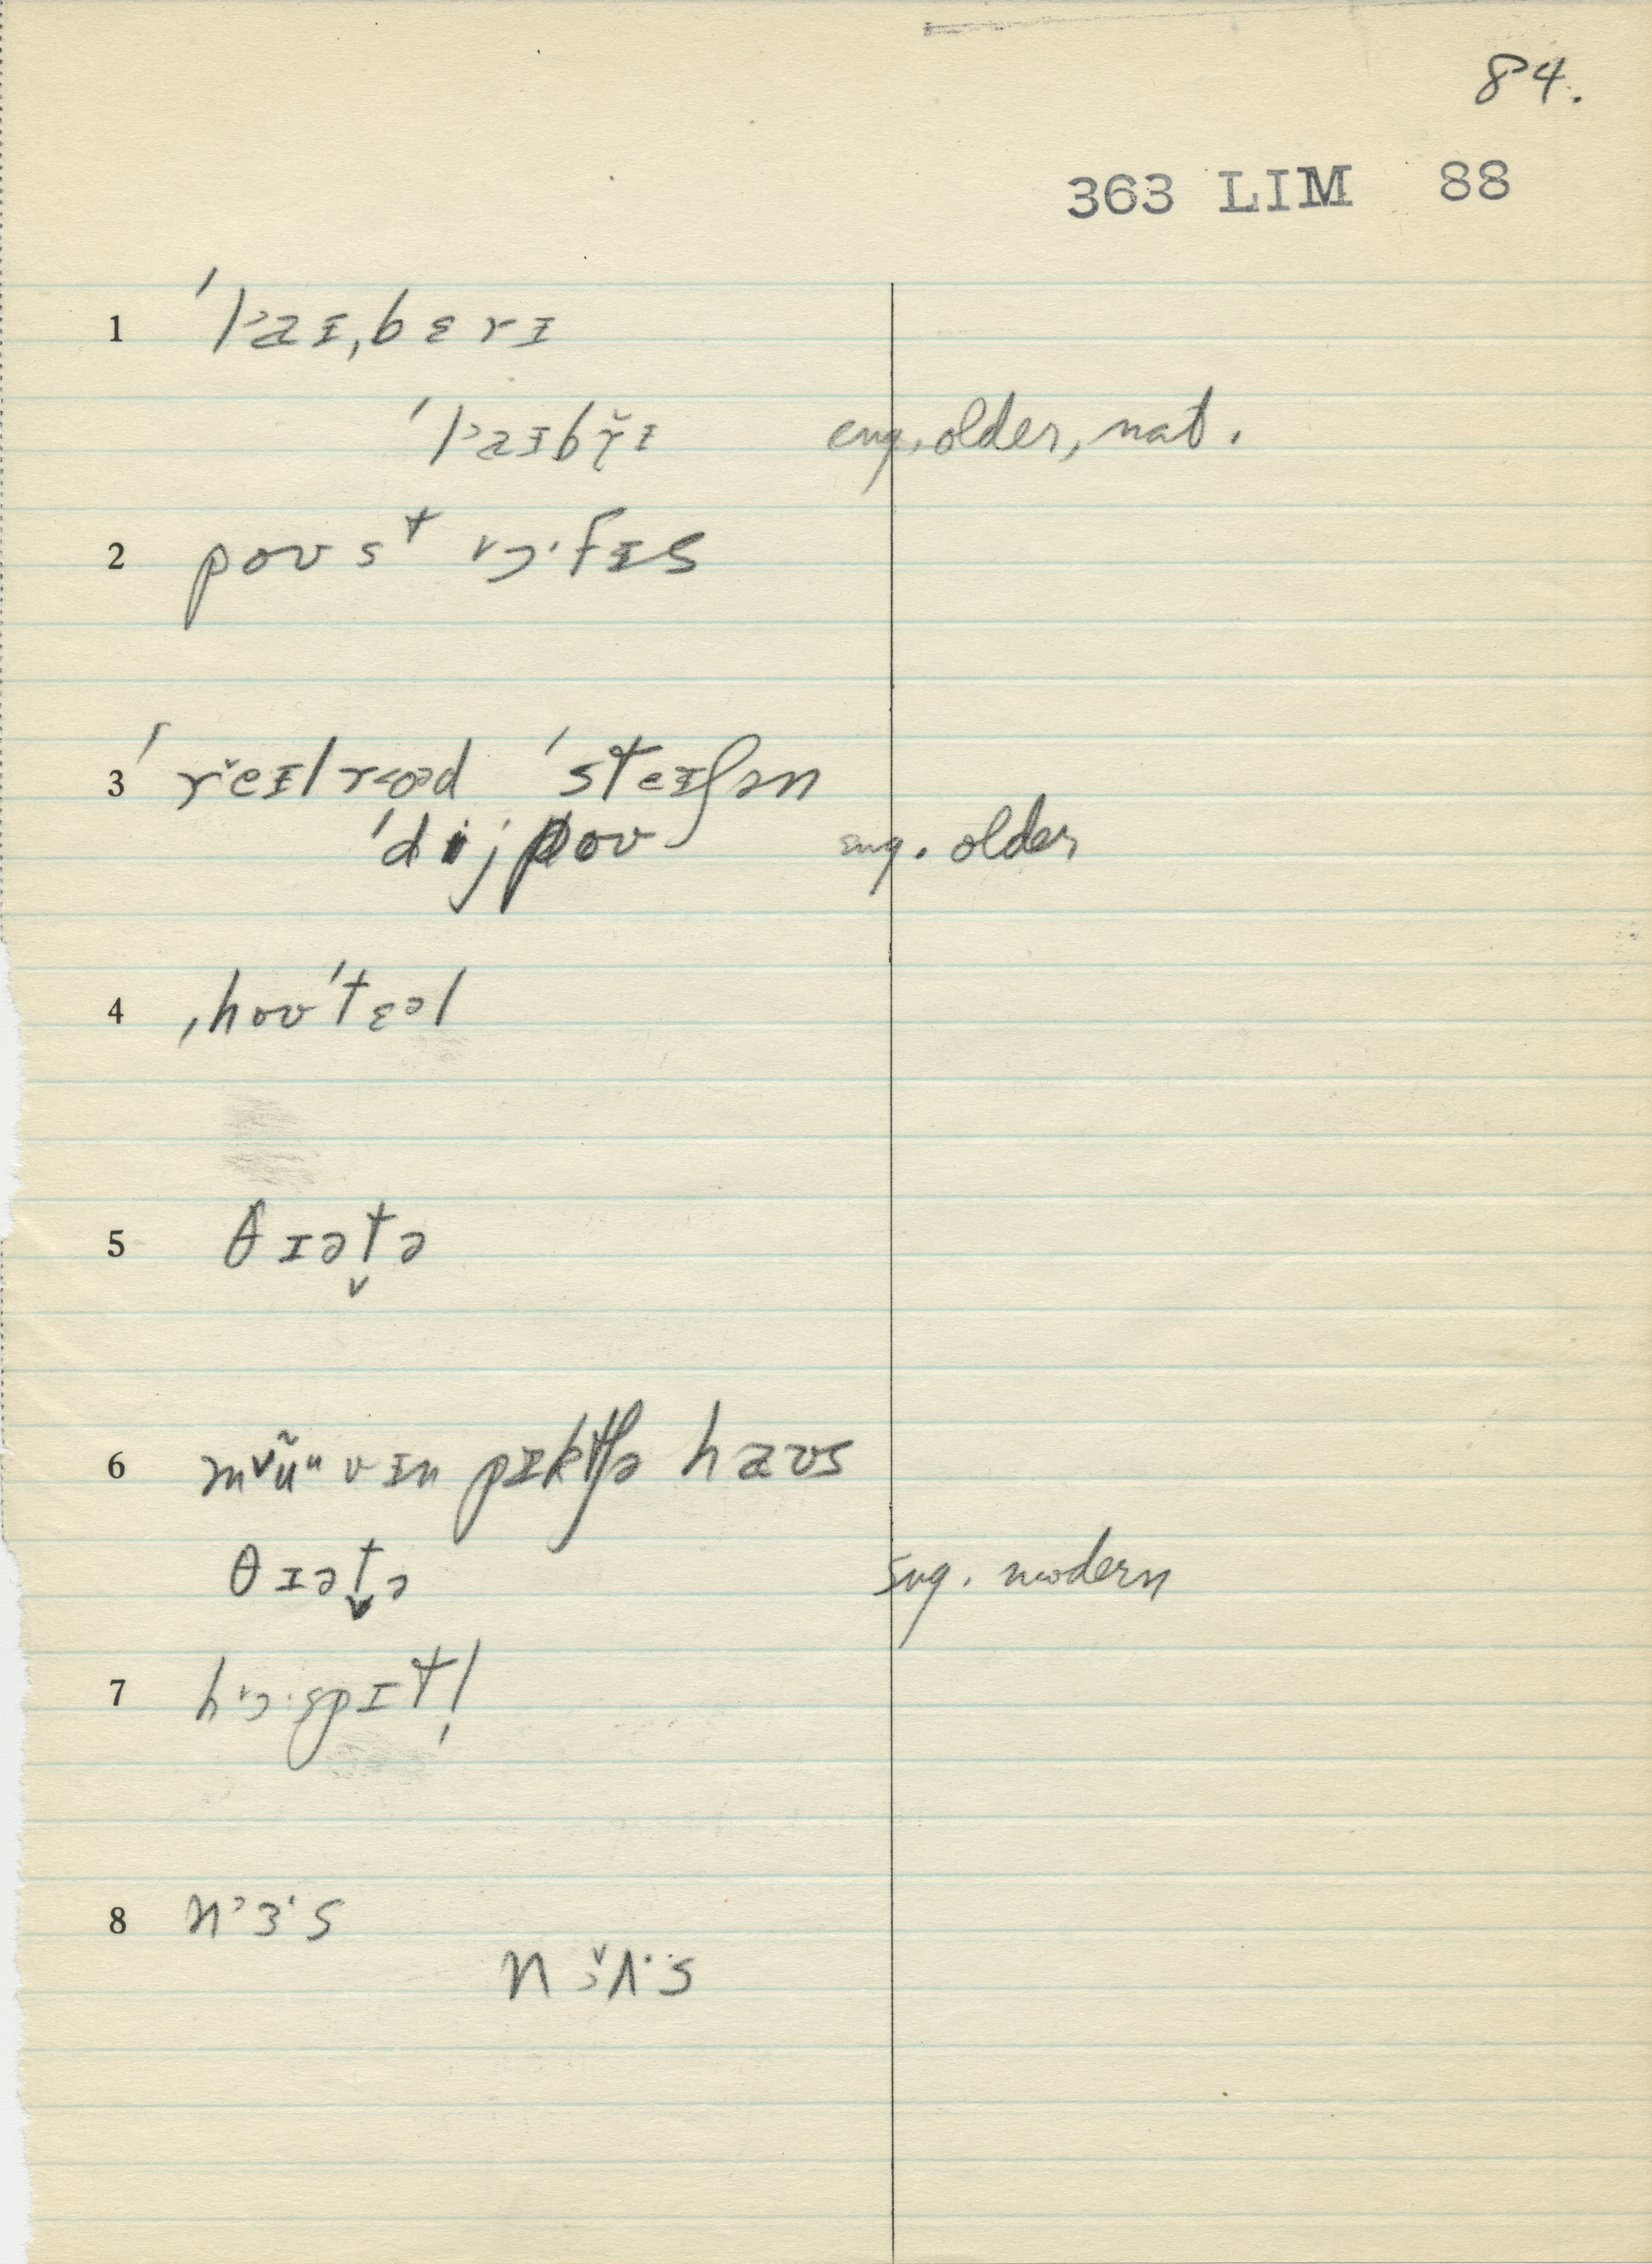 84.
363 LIM 88
1 ˈlᵊaɪˌbɛrɪ
ˈlᵊaɪbr̥̆ɪ eng. older, nat.
2 poʊst ɔ·fɪs
3 ˈrĕɪlroəd ˈsteɪʃən
ˈdijpoʊ sug. older
4 ˌhoʊˈtɛəl
5 θɪət̬ə
6 ʊɪn pɪktʃə haʊs
θɪət̬ə sug. modern
7 hɔ·spɪtl̩
8 nᵊɜ·s
nɜ̆ʌ·s